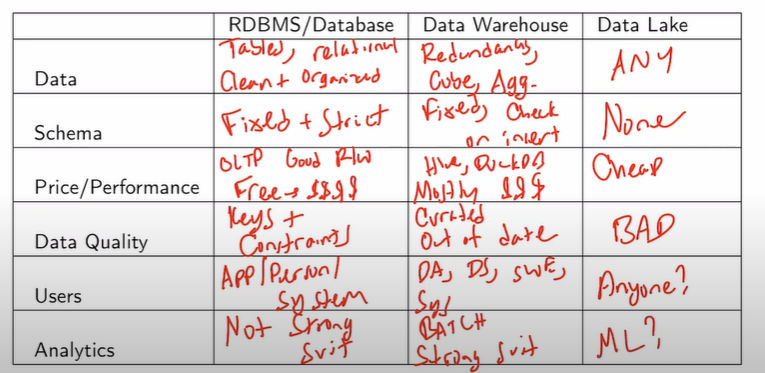 RDBMS/Database Data Warehouse Data Lake
Data Tables, relational Clean + Organized Redundancy, Cube, Agg. ANY
Schema Fixed + Strict Fixed, Check on insert None
Price/Performance OLTP Good R/W Free → $$$$ Hive, DuckDB Mostly $$$ Cheap
Data Quality Keys + Constraints Curated Out of date BAD
Users APP/Person/ System DA, DS, SWE, Sys Anyone?
Analytics Not Strong Suit BATCH Strong Suit ML?